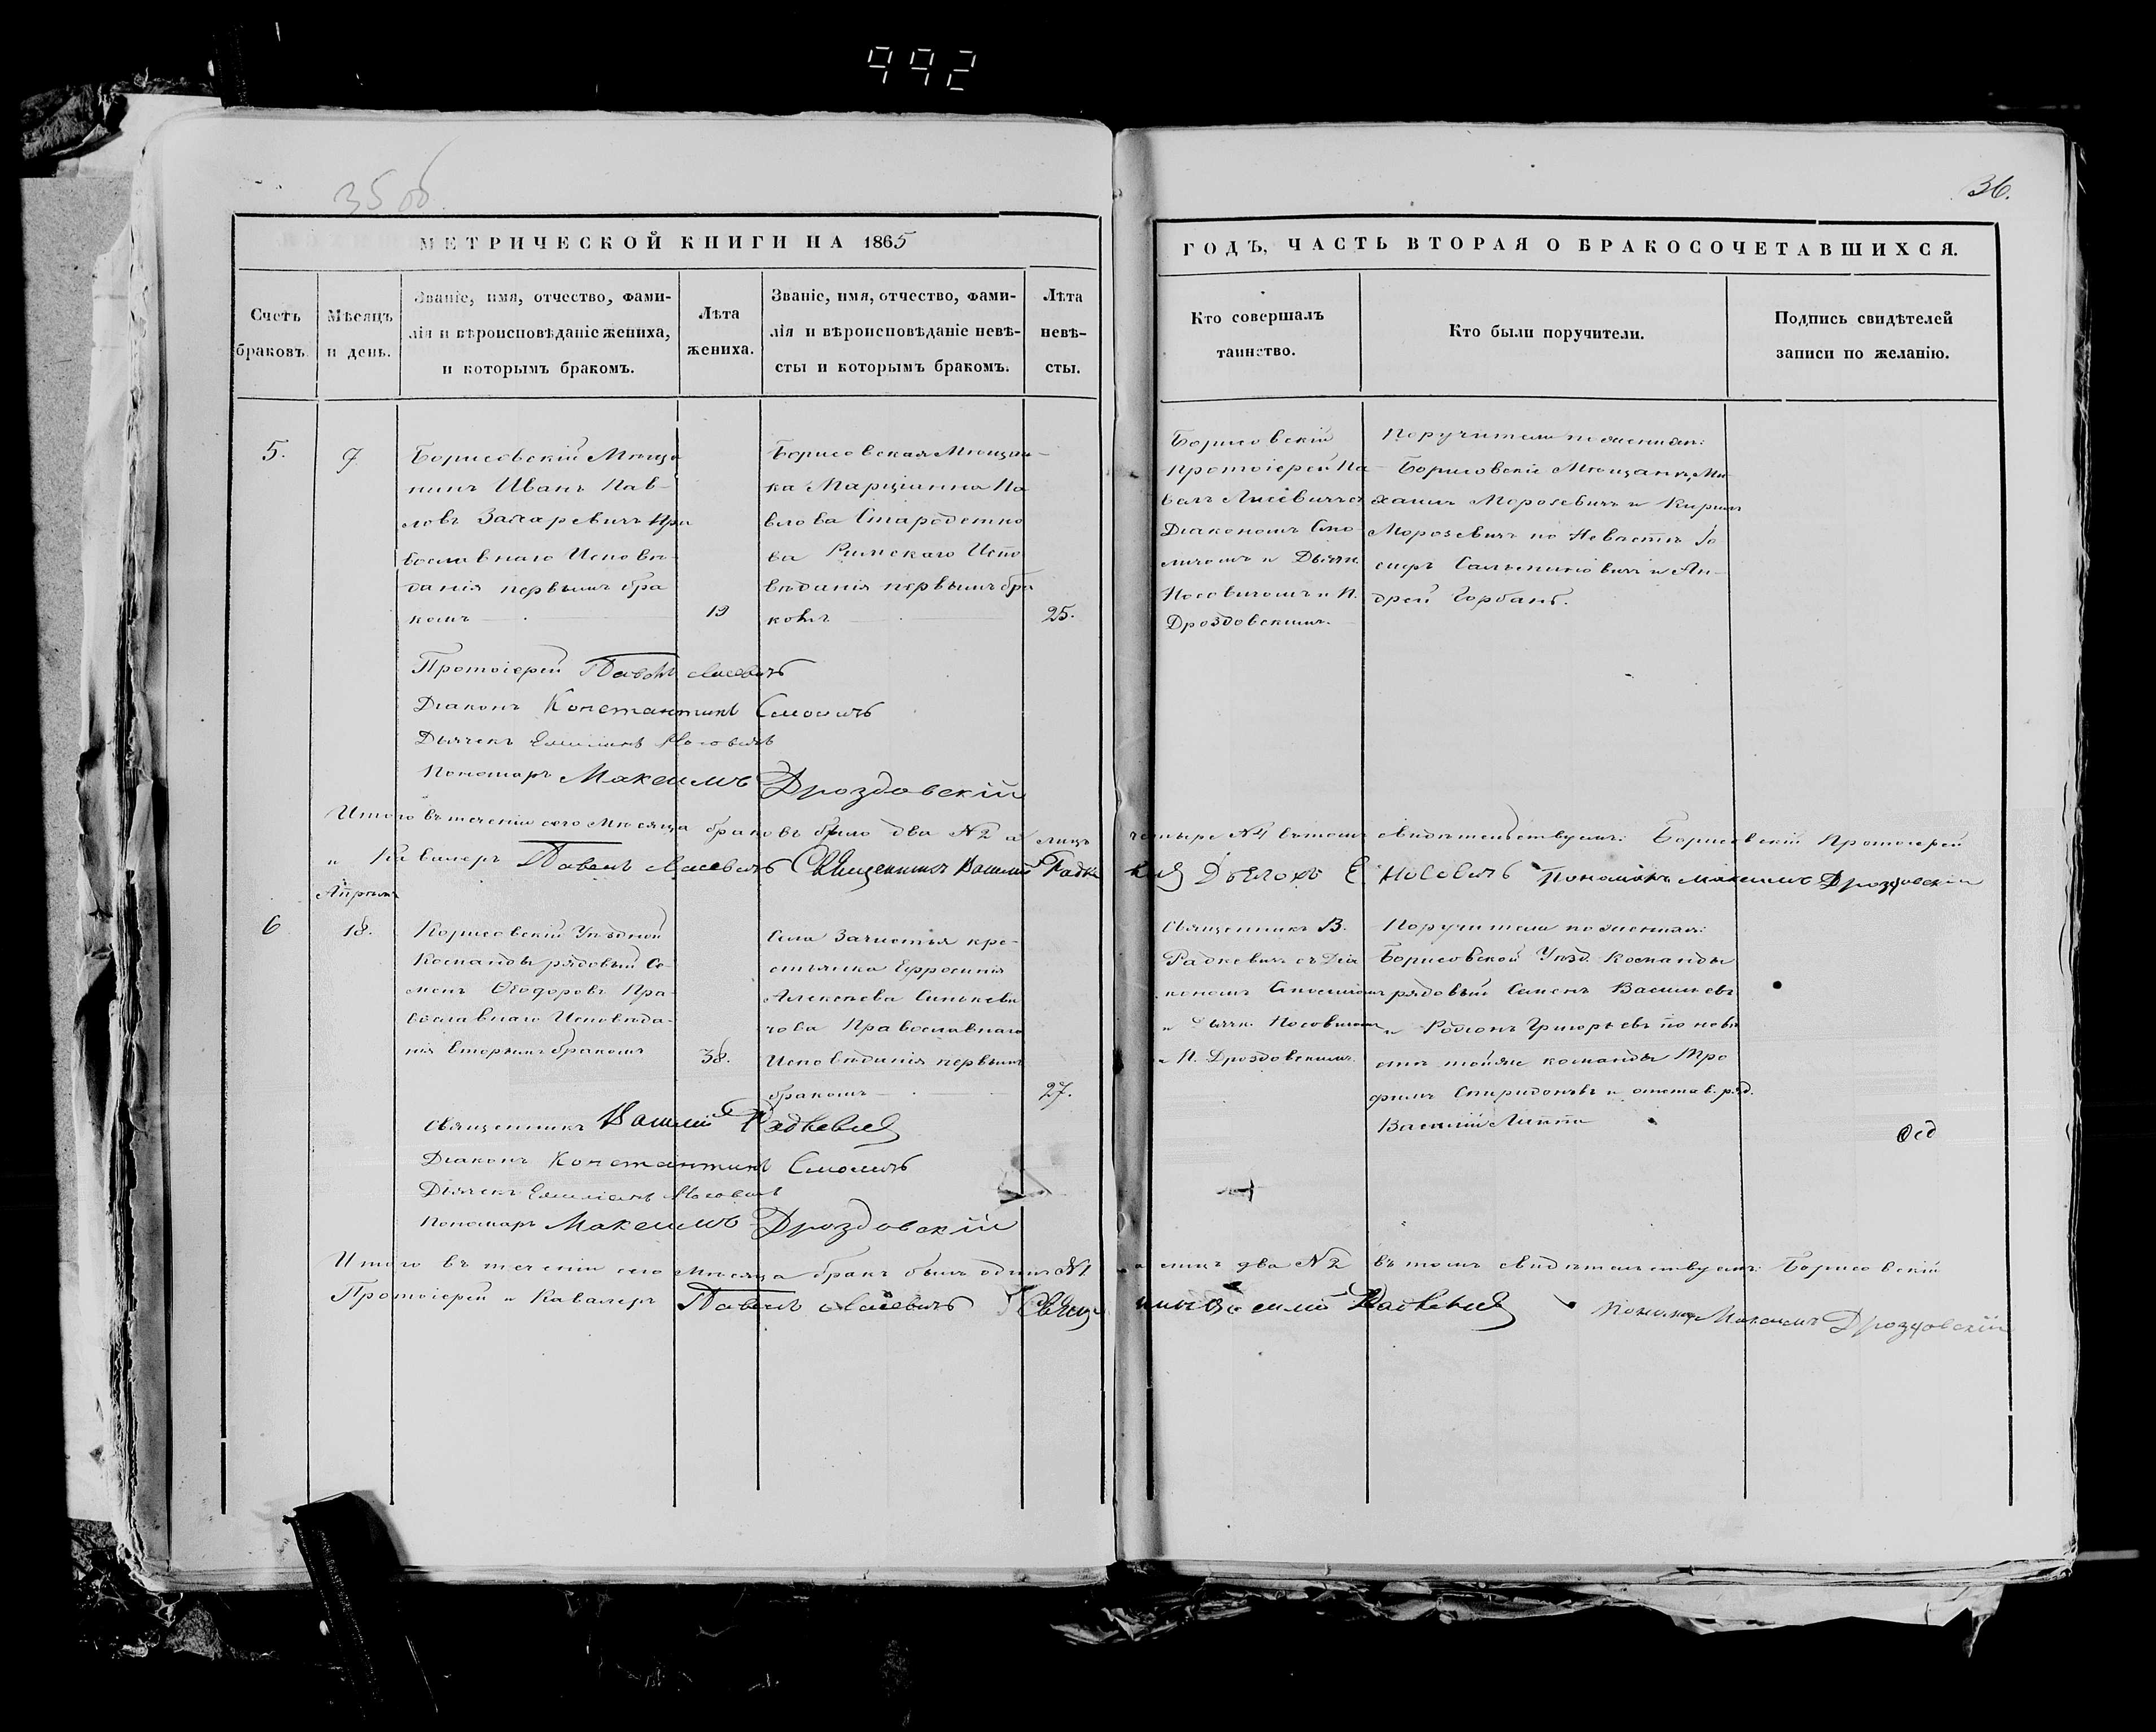 992
35 об.
36.
МЕТРИЧЕСКОЙ КНИГИ НА 1865
ГОДЪ, ЧАСТЬ ВТОРАЯ О БРАКОСОЧЕТАВШИХСЯ.
Счетъ
браковъ
Мѣсяцъ
и день.
Званіе, имя, отчество, фами-
лія и вѣроисповѣданіе жениха,
и которымъ бракомъ.
Лѣта
жениха.
Званіе, имя, отчество, фами-
лія и вѣроисповѣданіе невѣ-
сты и которымъ бракомъ.
Лѣта
невѣ-
сты.
Кто совершалъ
таинство.
Кто были поручители.
Подпись свидѣтелей
записи по желанію.
5.
7
Борисовскій Мѣща
нинъ Иванъ Пав-
ловъ Захаревичъ Пра
вославнаго Исповѣ-
данія первымъ бра
комъ
19
Борисовская Мѣщан-
ка Марціанна Па
влова
Римскаго Испо
вѣданія первымъ бра
комъ
25.
Борисовскій
Протоіерей Па-
велъ Лисевичъ съ
Діакономъ Смо
личомъ и Дьячк.
Носовичомъ и П.
Дроздовскимъ.
Поручители по женихѣ:
Борисовскіе Мѣщане, Ми
хаилъ Морозевичъ и Кирилъ
Морозевичъ по Невѣстѣ Іо
сифъ и Ан-
дрей Горбань.
Протоіерей Павелъ Лисевичъ
Діаконъ Константинъ Смоличъ
Дьячекъ Емиліанъ Носовичъ
Пономарь Максимъ Дроздовскій
Итого въ теченіи сего Мѣсяца браковъ было два №2 а лицъ четыре №4 въ томъ свидѣтельствуемъ: Борисовскій Протоіерей
и Кавалеръ Павелъ Лисевичъ Священникъ Василій Радкевичъ Е. Носовичъ Пономарь Максимъ Дроздовскій
Апрѣль
6
18.
Борисовскій Уѣздной
Команды рядовый Се-
менъ Ѳеодоровъ Пра-
вославнаго Исповѣда-
нія вторымъ бракомъ
38.
Села Зачистья кре-
стьянка Ефросинія
Алексѣева Синькеви
чова Православнаго
Исповѣданія первымъ
бракомъ
27.
Священникъ В.
Радкевичъ съ Діа
кономъ Смоличомъ
и Дьячк. Носовичомъ
и П. Дроздовскимъ.
Поручители по женихѣ:
Борисовской Уѣзд. Команды
рядовый Семенъ Васильевъ
и Родіонъ Григорьевъ по невѣ
стѣ тойже команды Тро
фимъ Спиридоновъ и отстав. ряд.
Василій
Священникъ Василій Радкевичъ
Діаконъ Константинъ Смоличъ
Дьячекъ Емиліанъ Носовичъ
Пономарь Максимъ Дроздовскій
Итого въ теченіи сего Мѣсяца бракъ былъ одинъ №1 а лицъ два №2 въ томъ свидѣтельствуемъ: Борисовскій
Протоіерей и Кавалеръ Павелъ Лисевичъ Священникъ Василій Радкевичъ Пономарь Максимъ Дроздовскій